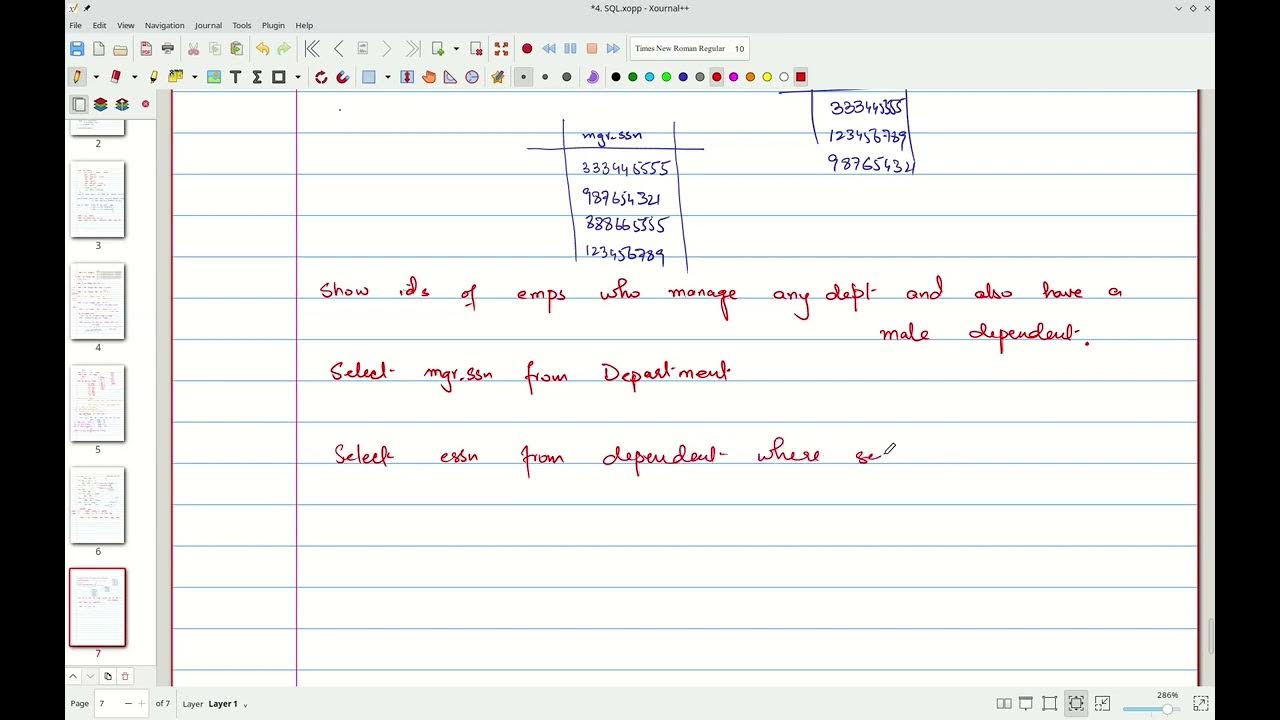 *4. SQL.xopp - Xournal++
File Edit View Navigation Journal Tools Plugin Help
Times New Roman Regular 10
333445555
123456789
987654321
mgr_ssn
333445555
987654321
888665555
123456789
Show ids of emps who manage any dept and also have a
male dependent.
Select mgr_ssn from Department
Select essn from dependent where se
2
3
4
5
6
7
Page 7 of 7 Layer Layer 1
286%